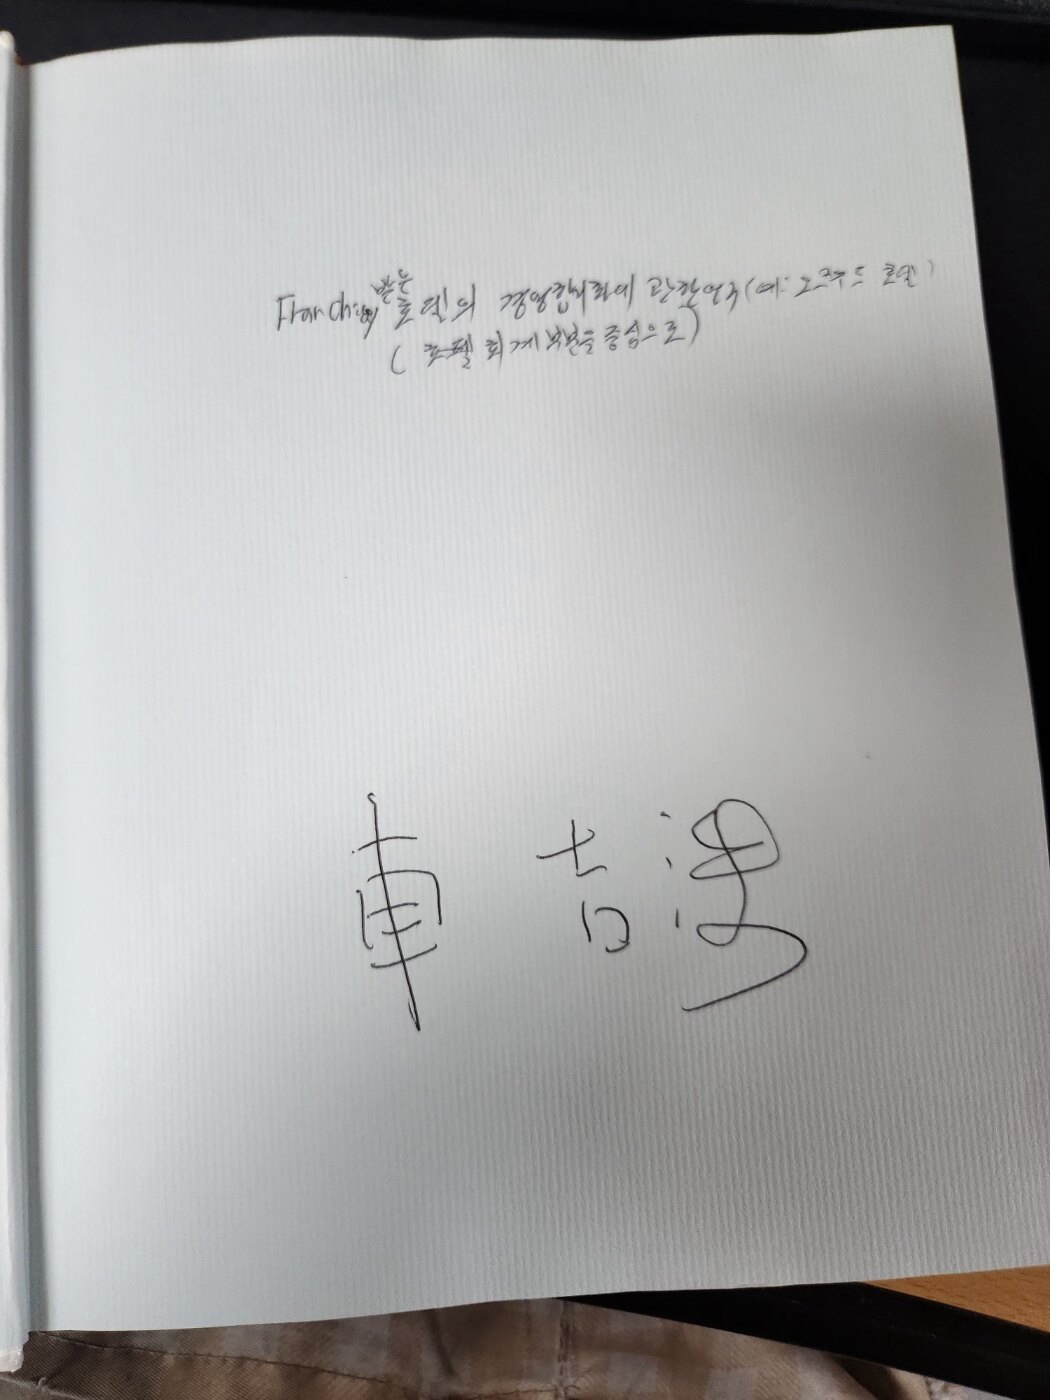 받은
Franchise 호텔의 경영합리화에 관한 연구 (예: 호텔)
(호텔 회계 부분을 중심으로)
車 吉